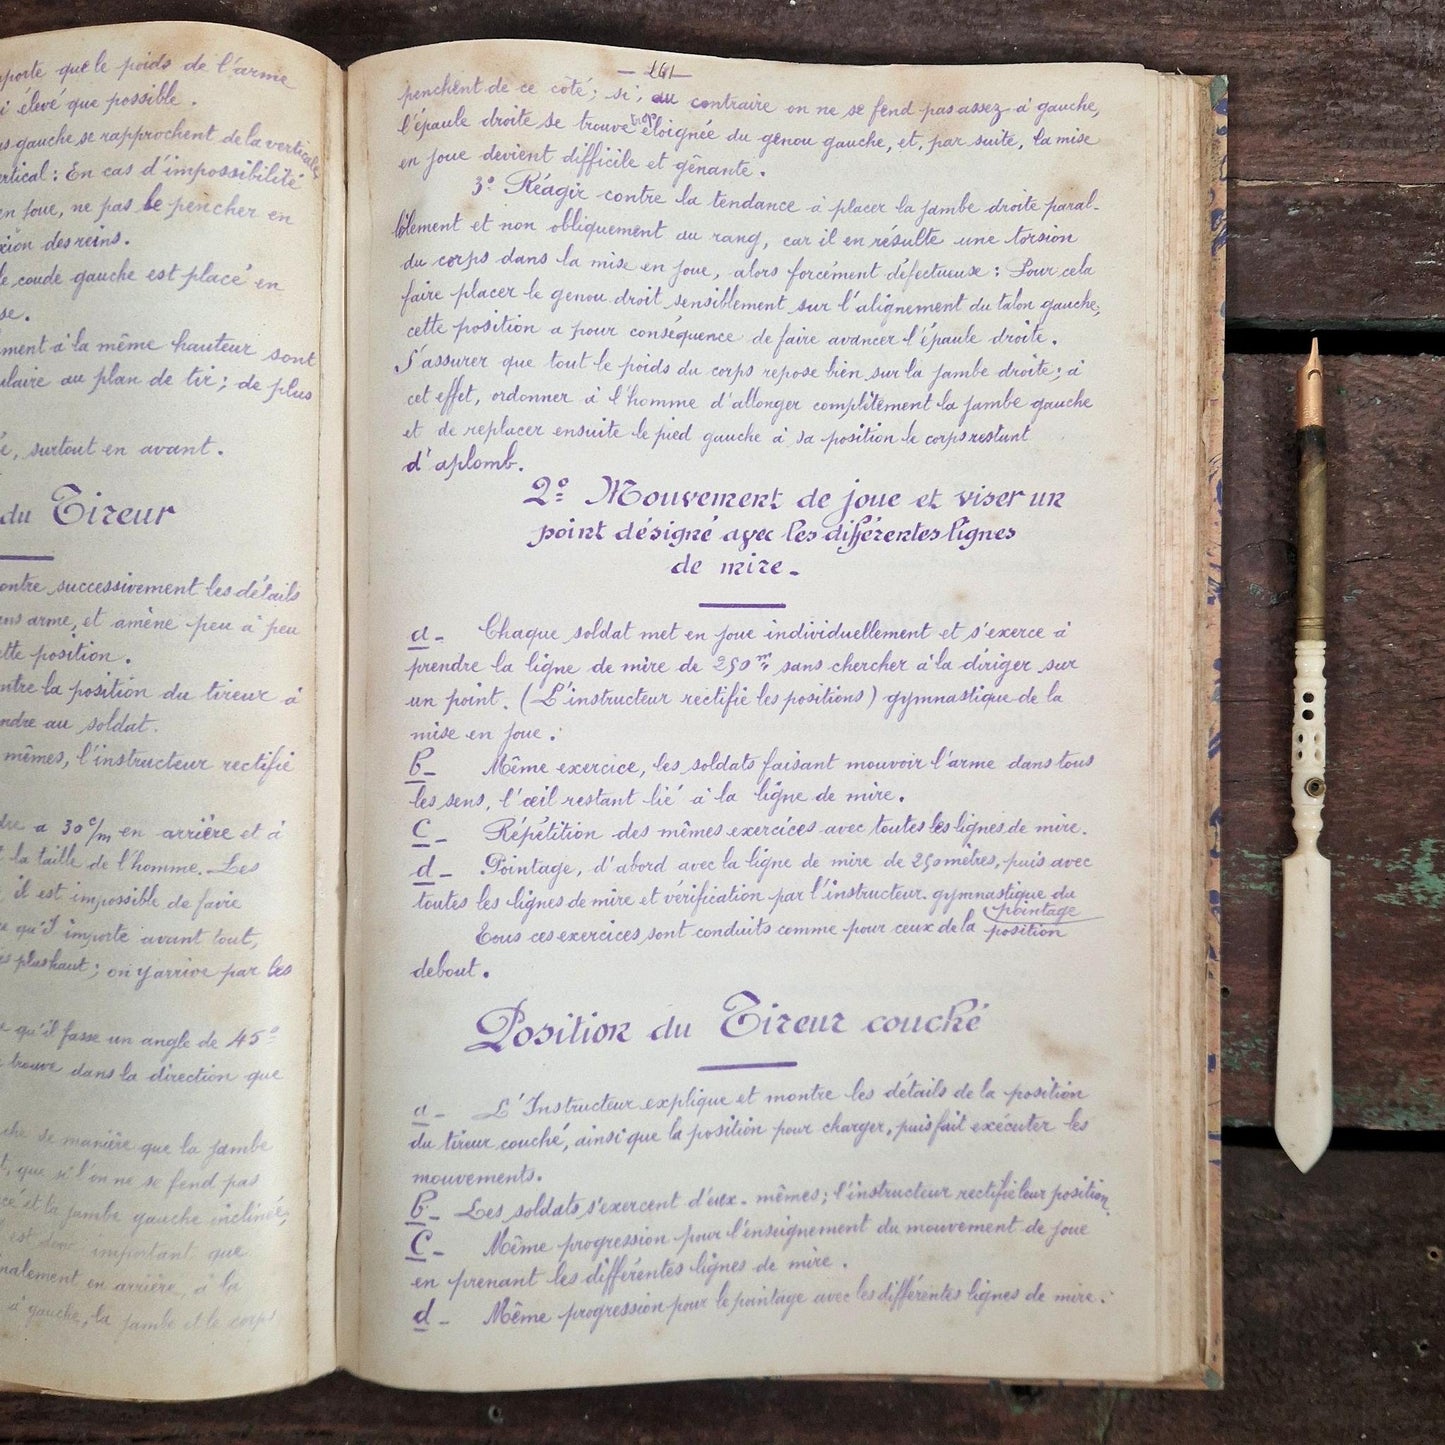 porte que le poids de l'arme
i élevé que possible.
gauche se rapprochent de la verticale,
rtical : En cas d'impossibilité
en joue, ne pas le pencher en
xion des reins.
le coude gauche est placé en
se.
ment à la même hauteur sont
ulaire au plan de tir ; de plus
, surtout en avant.
du Tireur
ontre successivement les détails
ns arme, et amène peu à peu
tte position.
ntre la position du tireur à
ndre au soldat.
mêmes, l'instructeur rectifie
dre a 30 c/m en arrière et à
la taille de l'homme. Les
il est impossible de faire
qu'I importe avant tout,
plus haut ; on y arrive par les
qu'il fasse un angle de 45°
trouve dans la direction que
de manière que la jambe
que si l'on ne se fend pas
et la jambe gauche inclinée,
est donc important que
nalement en arrière, à la
à gauche, la jambe et le corps
- 161 -
penchent de ce côté ; si, au contraire on ne se fend pas assez à gauche,
l'épaule droite se trouve trop éloignée du genou gauche, et, par suite, la mise
en joue devient difficile et gênante.
3° Réagir contre la tendance à placer la jambe droite paral-
lèlement et non obliquement au rang, car il en résulte une torsion
du corps dans la mise en joue, alors forcément défectueuse : Pour cela
faire placer le genou droit sensiblement sur l'alignement du talon gauche,
cette position a pour conséquence de faire avancer l'épaule droite.
S'assurer que tout le poids du corps repose bien sur la jambe droite ; à
cet effet, ordonner à l'homme d'allonger complètement la jambe gauche
et de replacer ensuite le pied gauche à sa position le corps restant
d'aplomb.
2° Mouvement de joue et viser un
point désigné avec les différentes lignes
de mire.-
a - Chaque soldat met en joue individuellement et s'exerce à
prendre la ligne de mire de 250 m, sans chercher à la diriger sur
un point. (L'instructeur rectifie les positions) gymnastique de la
mise en joue.
b - Même exercice, les soldats faisant mouvoir l'arme dans tous
les sens, l'œil restant lié à la ligne de mire.
C - Répétition des mêmes exercices avec toutes les lignes de mire.
d - Pointage, d'abord avec la ligne de mire de 250 mètres, puis avec
toutes les lignes de mire et vérification par l'instructeur. gymnastique du
pointage
Tous ces exercices sont conduits comme pour ceux de la position
debout.
Position du Tireur couché
a - L'Instructeur explique et montre les détails de la position
du tireur couché, ainsi que la position pour charger, puis fait exécuter les
mouvements.
b - Les soldats s'exercent d'eux-mêmes ; l'instructeur rectifie leur position.
C - Même progression pour l'enseignement du mouvement de joue
en prenant les différentes lignes de mire.
d - Même progression pour le pointage avec les différentes lignes de mire.